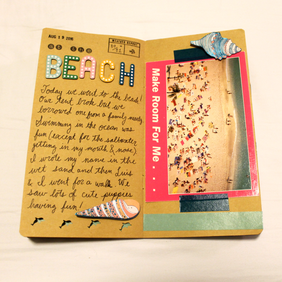 AUG 1 9 2016
BEACH
Today we went to the beach!
Our tent broke but we
borrowed one from a family nearby.
Swimming in the ocean was
fun (except for the saltwater
getting in my mouth & nose).
I wrote my name in the
wet sand and then Luis
& I went for a walk. We
saw lots of cute puppies
having fun!
Make Room For Me . . .